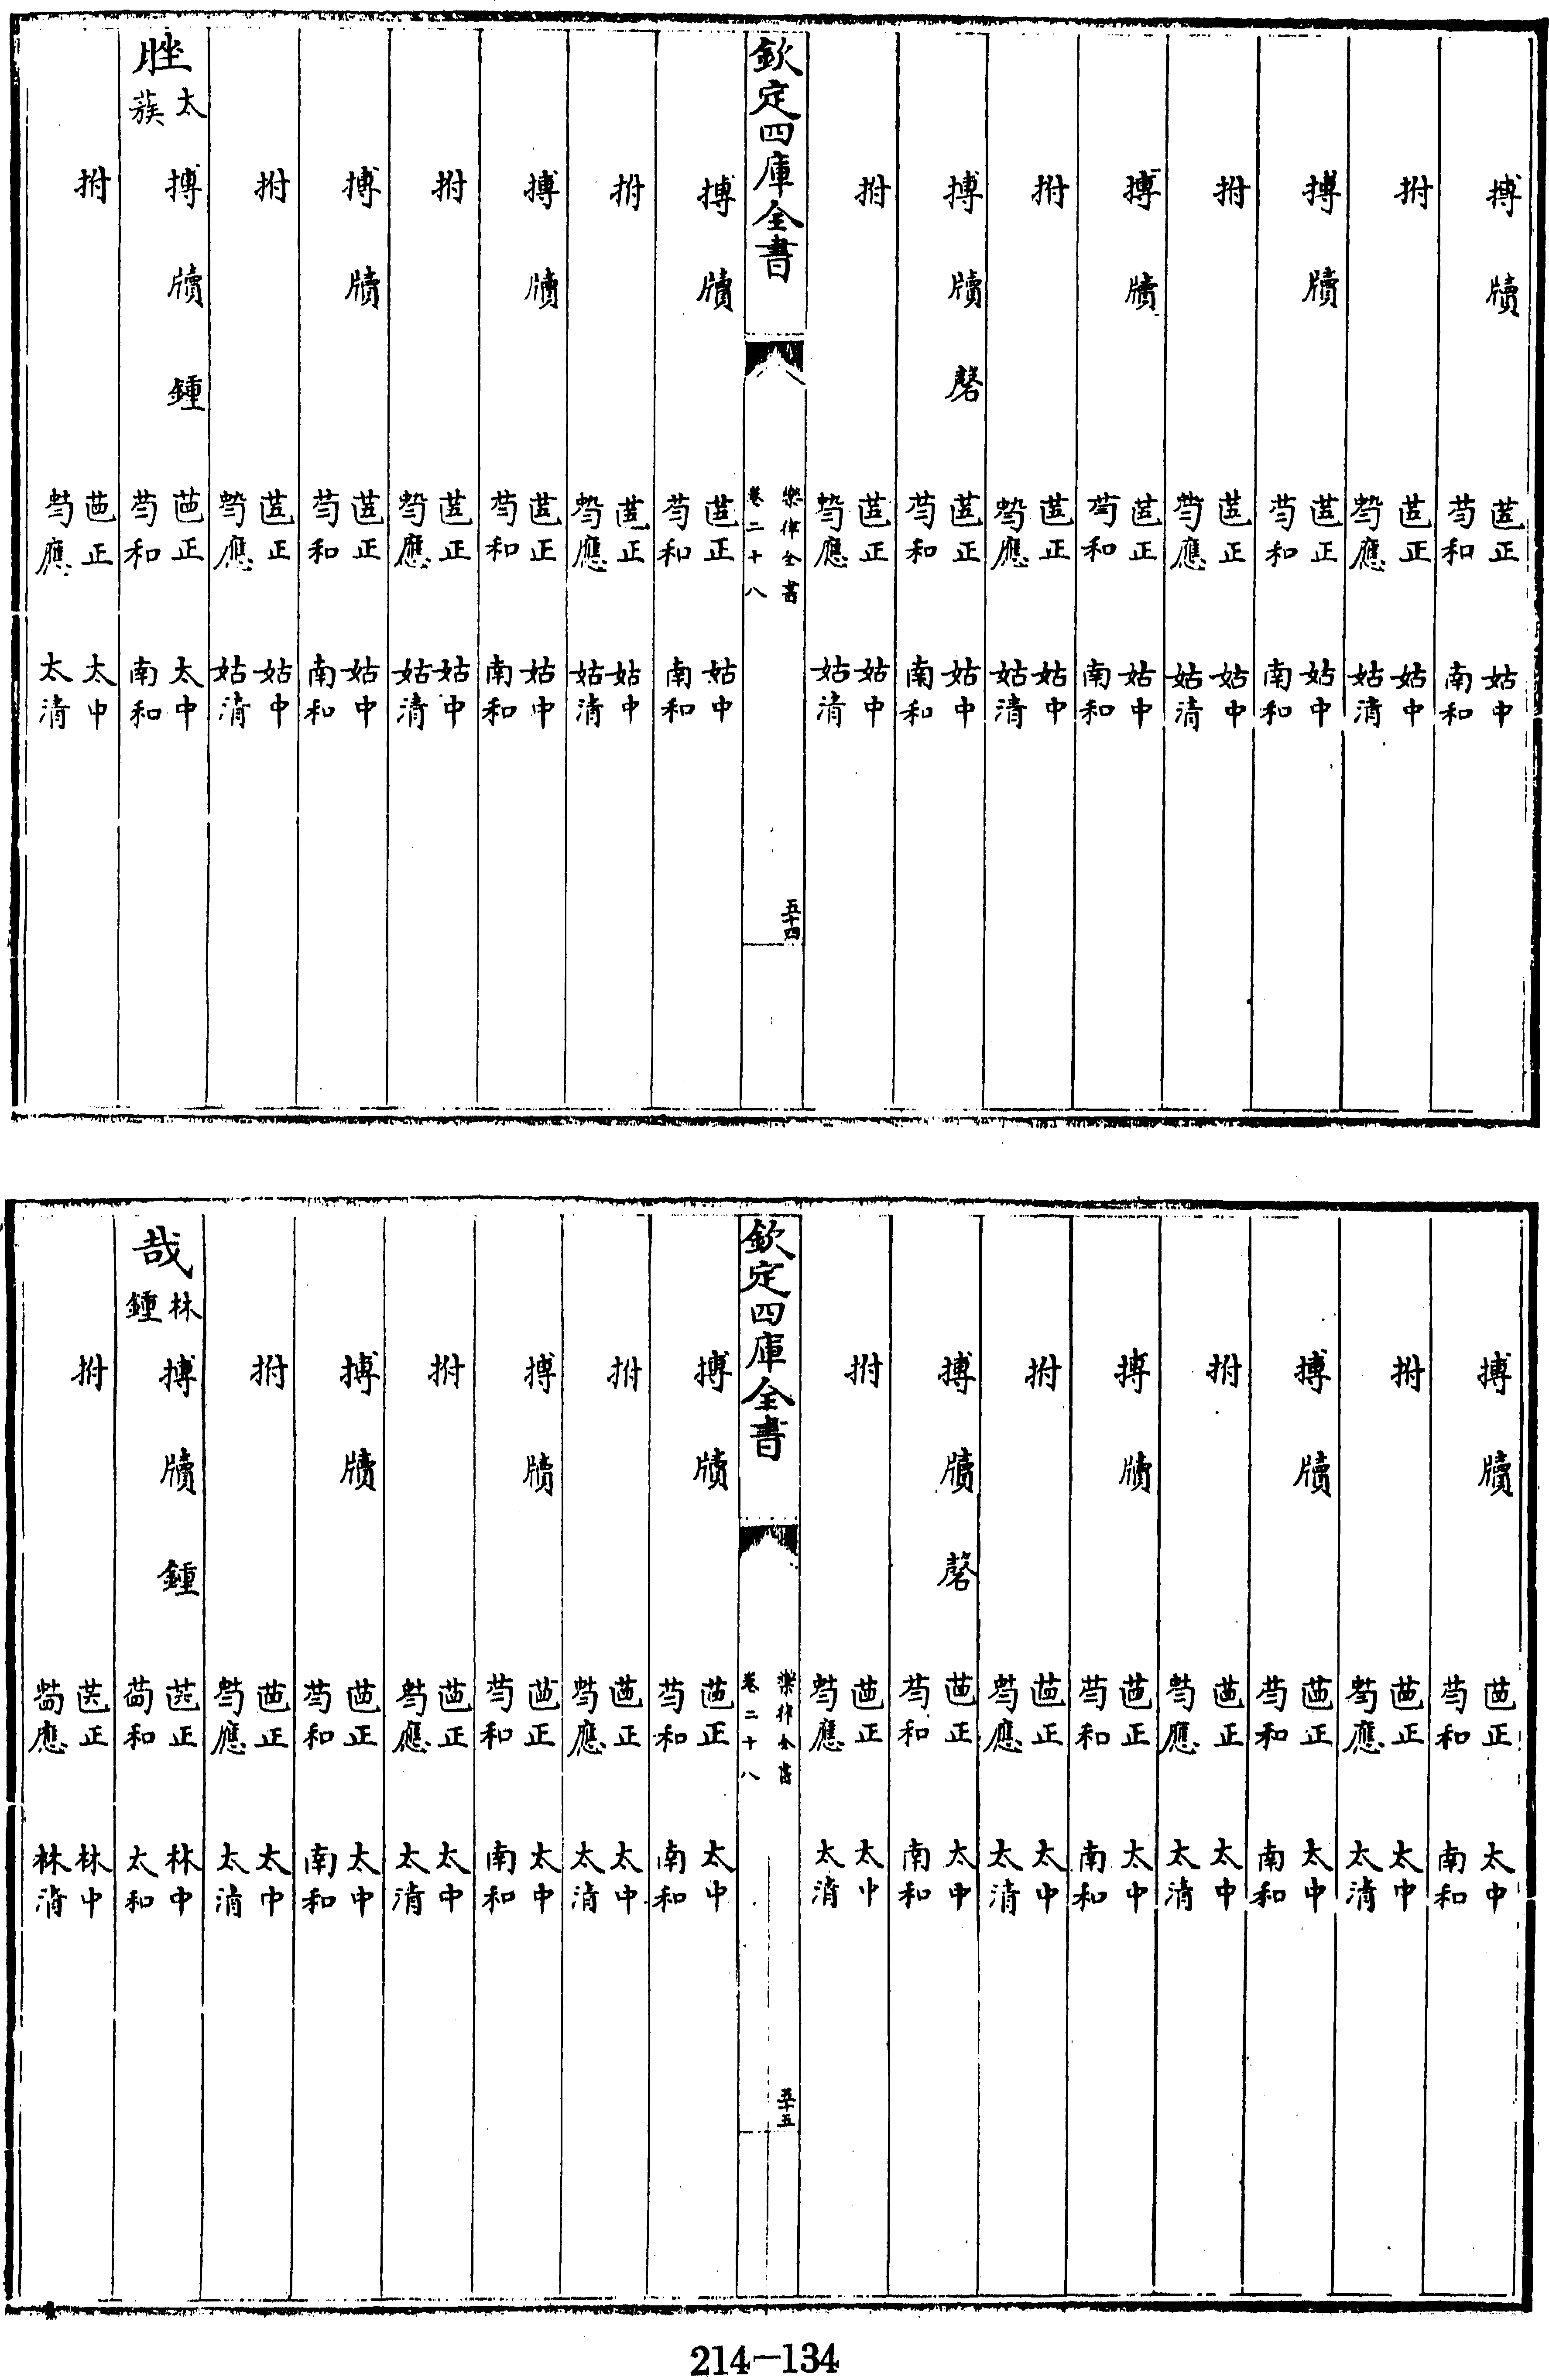 搏 牘 正 和 姑中 南和
拊 正 應 姑中 姑清
搏 牘 正 和 姑中 南和
拊 正 應 姑中 姑清
搏 牘 正 和 姑中 南和
拊 正 應 姑中 姑清
搏 牘 磬 正 和 姑中 南和
拊 正 應 姑中 姑清
欽定四庫全書 樂律全書 卷二十八 五十四
搏 牘 正 和 姑中 南和
拊 正 應 姑中 姑清
搏 牘 正 和 姑中 南和
拊 正 應 姑中 姑清
搏 牘 正 和 姑中 南和
拊 正 應 姑中 姑清
脞 太蔟 搏 牘 鍾 正 和 太中 南和
拊 正 應 太中 太清
搏 牘 正 和 太中 南和
拊 正 應 太中 太清
搏 牘 正 和 太中 南和
拊 正 應 太中 太清
搏 牘 正 和 太中 南和
拊 正 應 太中 太清
搏 牘 磬 正 和 太中 南和
拊 正 應 太中 太清
欽定四庫全書 樂律全書 卷二十八 五十五
搏 牘 正 和 太中 南和
拊 正 應 太中 太清
搏 牘 正 和 太中 南和
拊 正 應 太中 太清
搏 牘 正 和 太中 南和
拊 正 應 太中 太清
哉 林鍾 搏 牘 鍾 正 和 林中 太和
拊 正 應 林中 林清
214-134